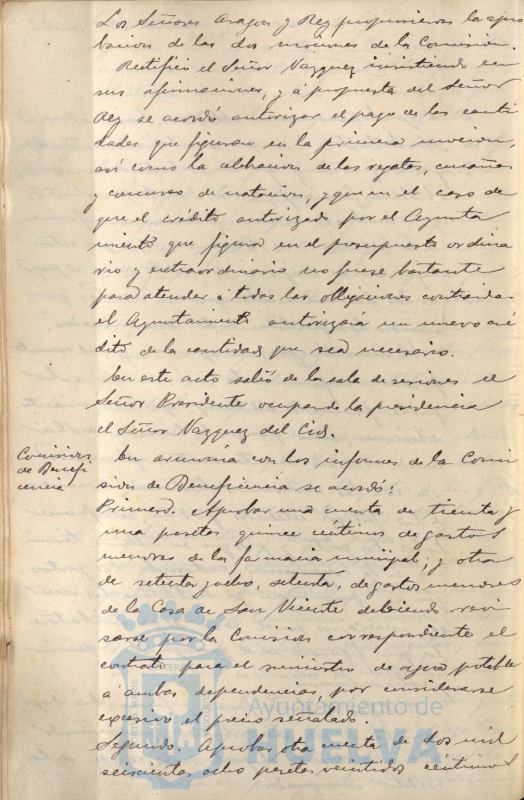 Los Señores Aragon y Rey propusieron la apro
bacion de las dos mociones de la Comision.
Rectificó el Señor Vazquez insistiendo en
sus afirmaciones, y á propuesta del Señor
Rey se acordó autorizar el pago de las canti
dades que figuran en la primera mocion,
así como la celebracion de las regatas, cucañas
y concurso de natacion, y que en el caso de
que el crédito autorizado por el Ayunta
miento que figura en el presupuesto ordina
rio y extraordinario no fuese bastante
para atender á todas las obligaciones contraidas
el Ayuntamiento autorizará un nuevo cré
dito de la cantidad que sea necesario.
En este acto salió de la sala de sesiones el
Señor Presidente ocupando la presidencia
el Señor Vázquez del Cid.
Comision
de Benefi
cencia
En armonía con los informes de la Comi
sion de Beneficencia se acordó:
Primero. Aprobar una cuenta de treinta y
una pesetas quince céntimos de gastos
menores de la farmacia municipal; y otra
de setenta y ocho, setenta, de gastos menores
de la Casa de San Vicente debiendo revi
sarse por la Comision correspondiente el
contrato para el suministro de agua potable
á ambas dependencias, por considerarse
excesivo el precio señalado.
Segundo. Aprobar otra cuenta de dos mil
seiscientas ocho pesetas veintidos céntimos
Ayuntamiento de
HUELVA